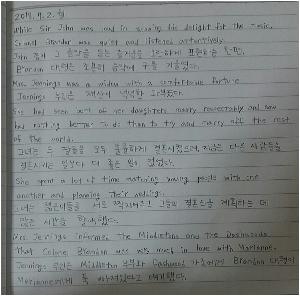 2019. 9. 2. 월
While Sir John was loud in showing his delight for the music,
Colonel Brandon was quiet and listened attentively.
John 경이 그 음악을 듣는 즐거움을 크게 표현하는 한편,
Brandon 대령은 조용히 음악에 귀를 기울였다.
Mrs. Jennings was a widow with a comfortable fortune
Jennings 부인은 재산이 넉넉한 과부였다.
She had seen both of her daughters marry respectably and now
has nothing better to do than to try and marry off the rest
of the world.
그녀는 두 딸들을 모두 훌륭하게 결혼시켰으며, 지금은 다른 사람들을
결혼시키는 일보다 더 좋은 일이 없었다.
She spent a lot of time matching young people with one
another and planning their weddings.
그녀는 젊은이들을 서로 짝지어주고 그들의 결혼식을 계획하는 데
많은 시간을 할애했다.
Mrs. Jennings informed the Middletons and the Dashwoods
that Colonel Brandon was very much in love with Marianne.
Jennings 부인은 Middleton 부부와 Dashwood 가족에게 Brandon 대령이
Marianne에게 푹 빠져있다고 얘기했다.